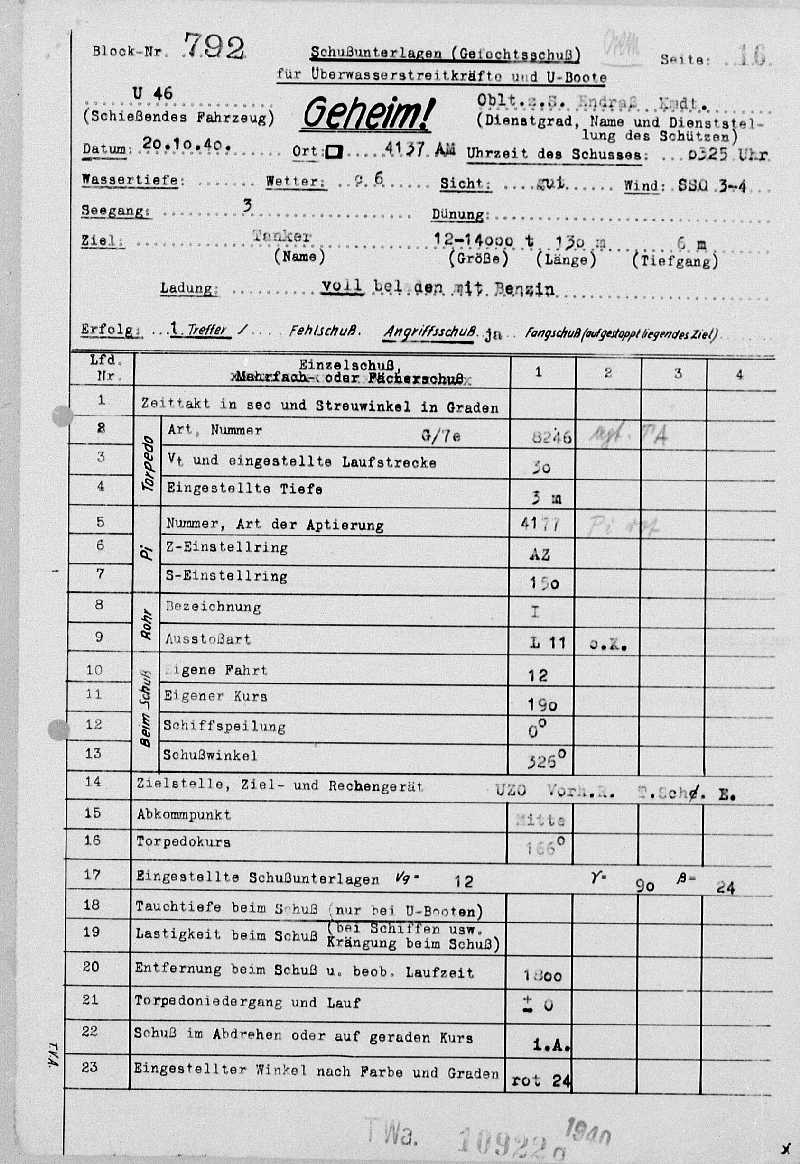 Block-Nr. 792 Schußunterlagen (Gefechtsschuß) Seite: 16.
für Überwasserstreitkräfte und U-Boote
U 46 Geheim! Oblt.z.S. Endraß Kmdt.
(Schießendes Fahrzeug) (Dienstgrad, Name und Dienststel-
lung des Schützen)
Datum: 20.10.40. Ort: 4137 AM Uhrzeit des Schusses: 0325 Uhr
Wassertiefe: Wetter: c.6 Sicht: gut Wind: SSO 3-4
Seegang: 3 Dünung:
Ziel: Tanker 12-14000 t 130 m 6 m
(Name) (Größe) (Länge) (Tiefgang)
Ladung: voll beladen mit Benzin
Erfolg: 1. Treffer / Fehlschuß. Angriffsschuß. ja Fangschuß (auf gestoppt liegendes Ziel)
Lfd. Nr. Einzelschuß, 1 2 3 4
Mehrfach- oder Fächerschuß
1 Zeittakt in sec und Streuwinkel in Graden
Torpedo
2 Art, Nummer G/7e 8246 TA
3 Vt und eingestellte Laufstrecke 30
4 Eingestellte Tiefe 3 m
Pi
5 Nummer, Art der Aptierung 4177 Pi rot
6 Z-Einstellring AZ
7 S-Einstellring 150
Rohr
8 Bezeichnung I
9 Ausstoßart L 11 o.K.
Beim Schuß
10 Eigene Fahrt 12
11 Eigener Kurs 190
12 Schiffspeilung 0°
13 Schußwinkel 326°
14 Zielstelle, Ziel- und Rechengerät UZO Vorh.R. T.Sch. E.
15 Abkommpunkt Mitte
16 Torpedokurs 166°
17 Eingestellte Schußunterlagen Vg= 12 γ= 90 β= 24
18 Tauchtiefe beim Schuß (nur bei U-Booten)
19 Lastigkeit beim Schuß (bei Schiffen usw.
Krängung beim Schuß)
20 Entfernung beim Schuß u. beob. Laufzeit 1800
21 Torpedoniedergang und Lauf ± 0
22 Schuß im Abdrehen oder auf geraden Kurs i.A.
23 Eingestellter Winkel nach Farbe und Graden rot 24
TVA.
TWa. 10922 g 1940
x